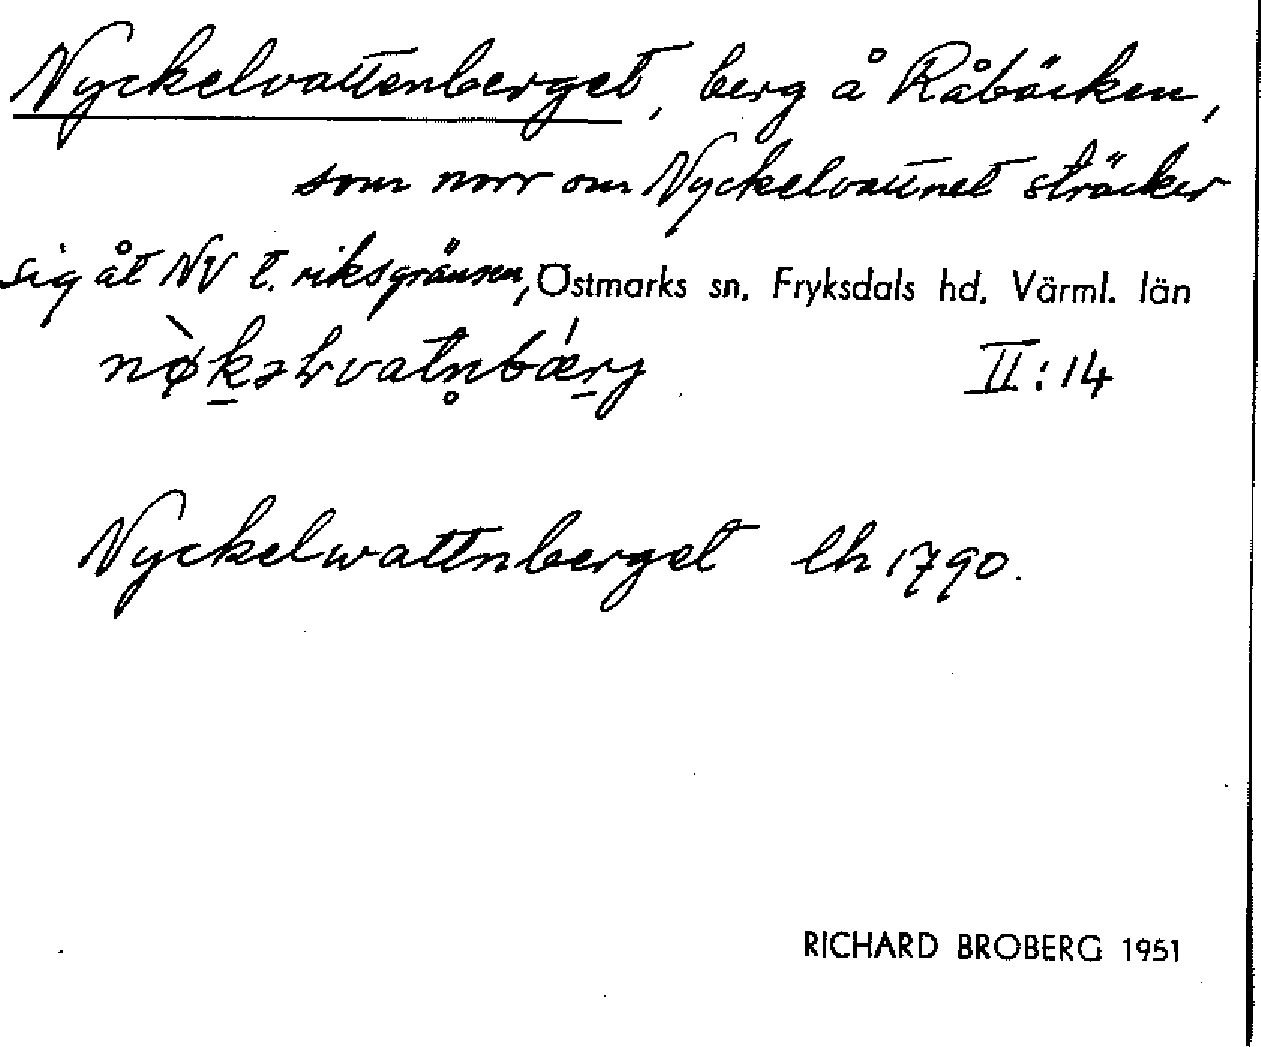 Nyckelvattenberget, berg å Råbäcken,
som norr om Nyckelvattnet sträcker
sig åt NV t. riksgränsen, Östmarks sn. Fryksdals hd. Värml. län
II:14
Nyckelwattnberget lh 1790.
RICHARD BROBERG 1951